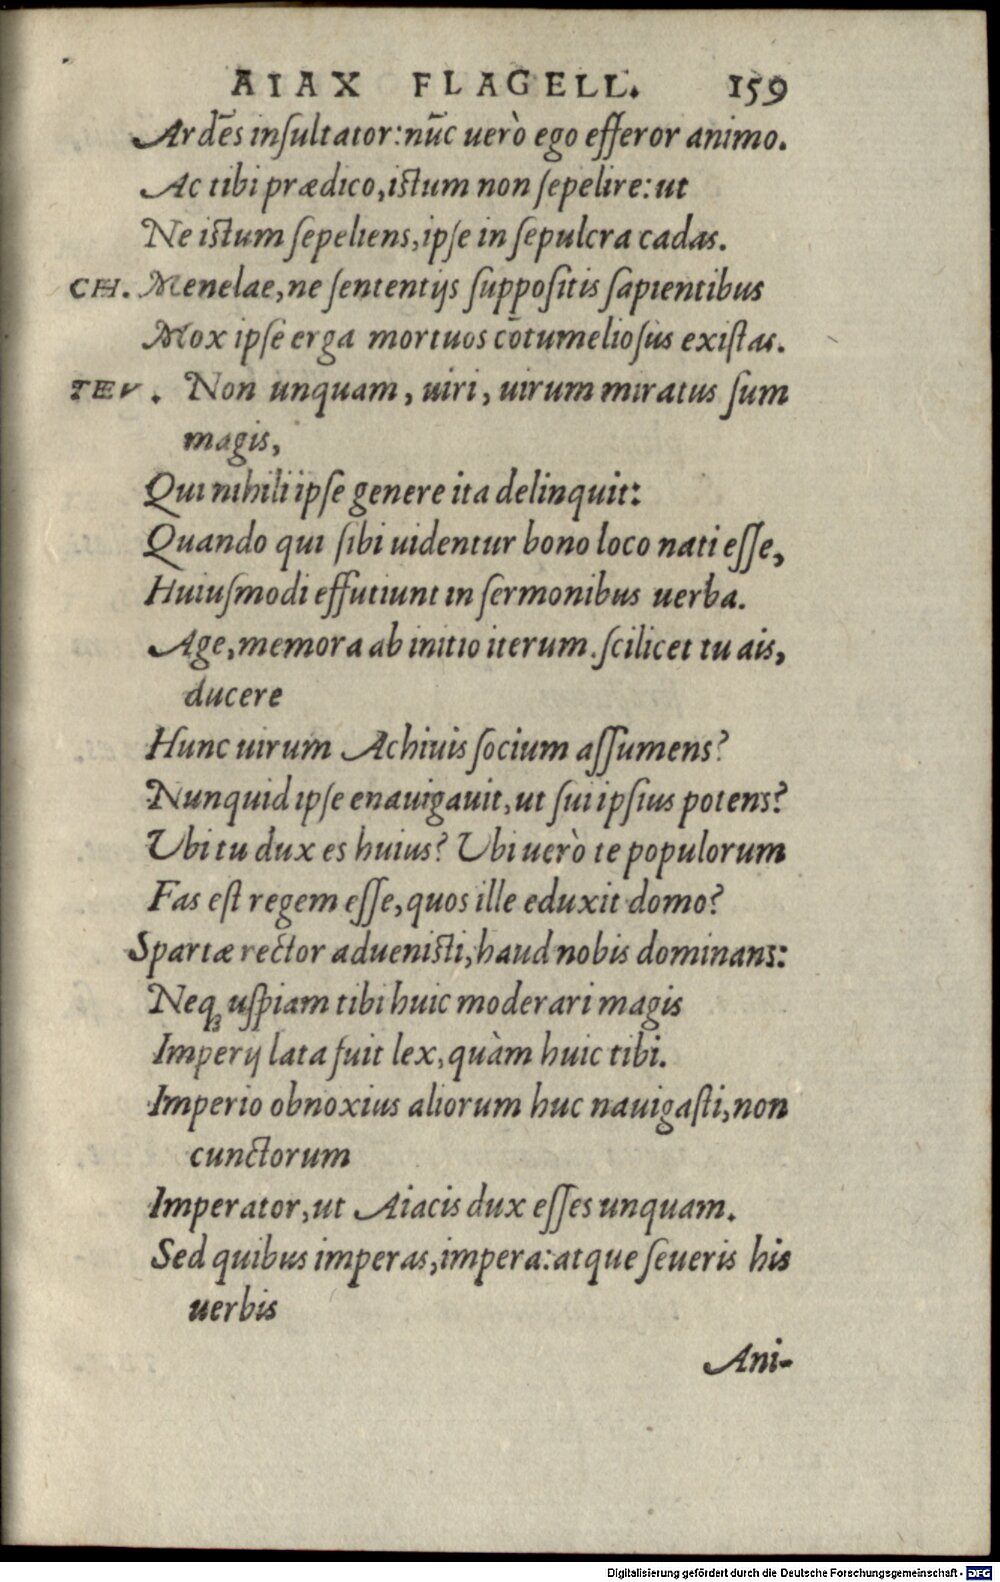 AIAX FLAGELL. 159
Ardēs inſultator: nūc uerò ego efferor animo.
Ac tibi prædico, iſtum non ſepelire: ut
Ne iſtum ſepeliens, ipſe in ſepulcra cadas.
CH. Menelae, ne ſententijs ſuppoſitis ſapientibus
Mox ipſe erga mortuos cōtumelioſus exiſtas.
TEV. Non unquam, uiri, uirum miratus ſum
magis,
Qui nihili ipſe genere ita delinquit:
Quando qui ſibi uidentur bono loco nati eſſe,
Huiuſmodi effutiunt in ſermonibus uerba.
Age, memora ab initio iterum. ſcilicet tu ais,
ducere
Hunc uirum Achiuis ſocium aſſumens?
Nunquid ipſe enauigauit, ut ſui ipſius potens?
Ubi tu dux es huius? Ubi uerò te populorum
Fas eſt regem eſſe, quos ille eduxit domo?
Spartæ rector adueniſti, haud nobis dominans:
Neq; uſpiam tibi huic moderari magis
Imperij lata fuit lex, quàm huic tibi.
Imperio obnoxius aliorum huc nauigaſti, non
cunctorum
Imperator, ut Aiacis dux eſſes unquam.
Sed quibus imperas, impera: atque ſeueris his
uerbis
Ani-
Digitalisierung gefördert durch die Deutsche Forschungsgemeinschaft - DFG